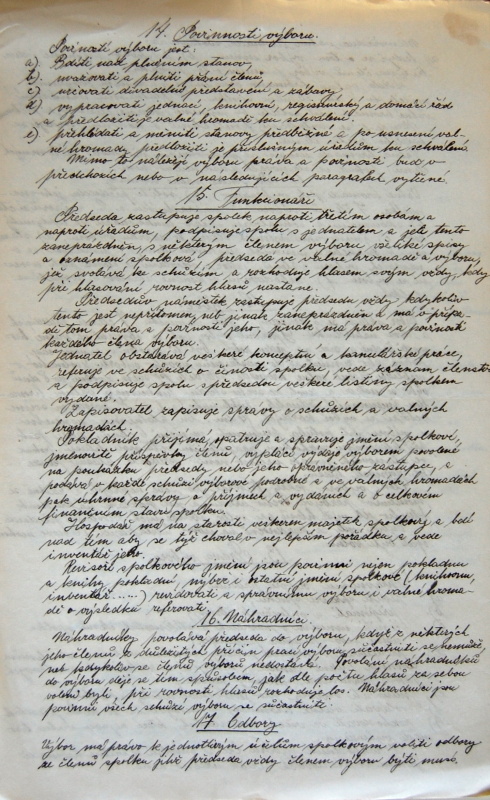 14. Povinnosti výboru.
Povinností výboru jest:
a) Bdíti nad plněním stanov,
b) uvažovati a plniti přání členů,
c) určovati divadelní představení a zábavy,
d) vypracovati jednací, knihovní, regisseurský a domácí řád
a předložiti je valné hromadě ku schválení.
e) přehlédati a měniti stanovy předběžně a po usnesení val-
né hromady předložiti je příslušným úřadům ku schválení.
Mimo to náležejí výboru práva a povinnosti buď v
předchozích nebo v následujících paragrafech vytčené.
15. Funkcionáři
Předseda zastupuje spolek naproti třetím osobám a
naproti úřadům, podpisuje spolu s jednatelem a jeli tento
zaneprázdněn, s některým členem výboru veškeré spisy
a oznámení spolková, předsedá ve valné hromadě a výboru,
jež svolává ke schůzím a rozhoduje hlasem svým vždy, kdy
při hlasování rovnost hlasů nastane.
Předsedův náměstek zastupuje předsedu vždy, kdykoliv
tento jest nepřítomen, neb jinak zaneprázdněn a má v přípa-
dě tom práva a povinnosti jeho, jinak má práva a povinnosti
každého člena výboru.
Jednatel obstarává veškeré konceptní a kancelářské práce,
referuje ve schůzích o činosti spolku, vede záznam členstva
a podpisuje spolu s předsedou veškeré listiny spolkem
vydané.
Zapisovatel zapisuje zprávy o schůzích a valných
hromadách.
Pokladník přijímá, opatruje a spravuje jmění spolkové,
jmenovitě příspěvky členů, vyplácí výdaje výborem povolené
na poukázku předsedy nebo jeho oprávněného zástupce, a
podává o každé schůzi výborové podrobné a ve valných hromadách
pak úhrnné zprávy o příjmech a vydáních a o celkovém
finančním stavu spolku.
Hospodář má na starosti veškeren majetek spolkový a bdí
nad tím aby se týž choval v nejlepším pořádku a vede
inventář jeho.
Revisoři spolkového jmění jsou povinni nejen pokladnu
a knihy pokladní, nýbrž i ostatní jmění spolkové (knihovnu,
inventář......) revidovati a správnímu výboru i valné hroma-
dě o výsledku referovati.
16. Náhradníci.
Náhradníky povolává předseda do výboru, když z některých
jeho členů z důležitých příčin prací výboru súčastniti se nemůže,
neb kdykoliv se členů výboru nedostává. Povolání náhradníků
do výboru děje se tím způsobem, jak dle počtu hlasů za sebou
voleni byli, při rovnosti hlasů rozhoduje los. Náhradníci jsou
povinni všech schůzí výboru se súčastniti.
17. Odbory
Výbor má právo k jednotlivým účelům spolkovým voliti odbory
ze členů spolku jichž předseda vždy členem výboru býti musí.